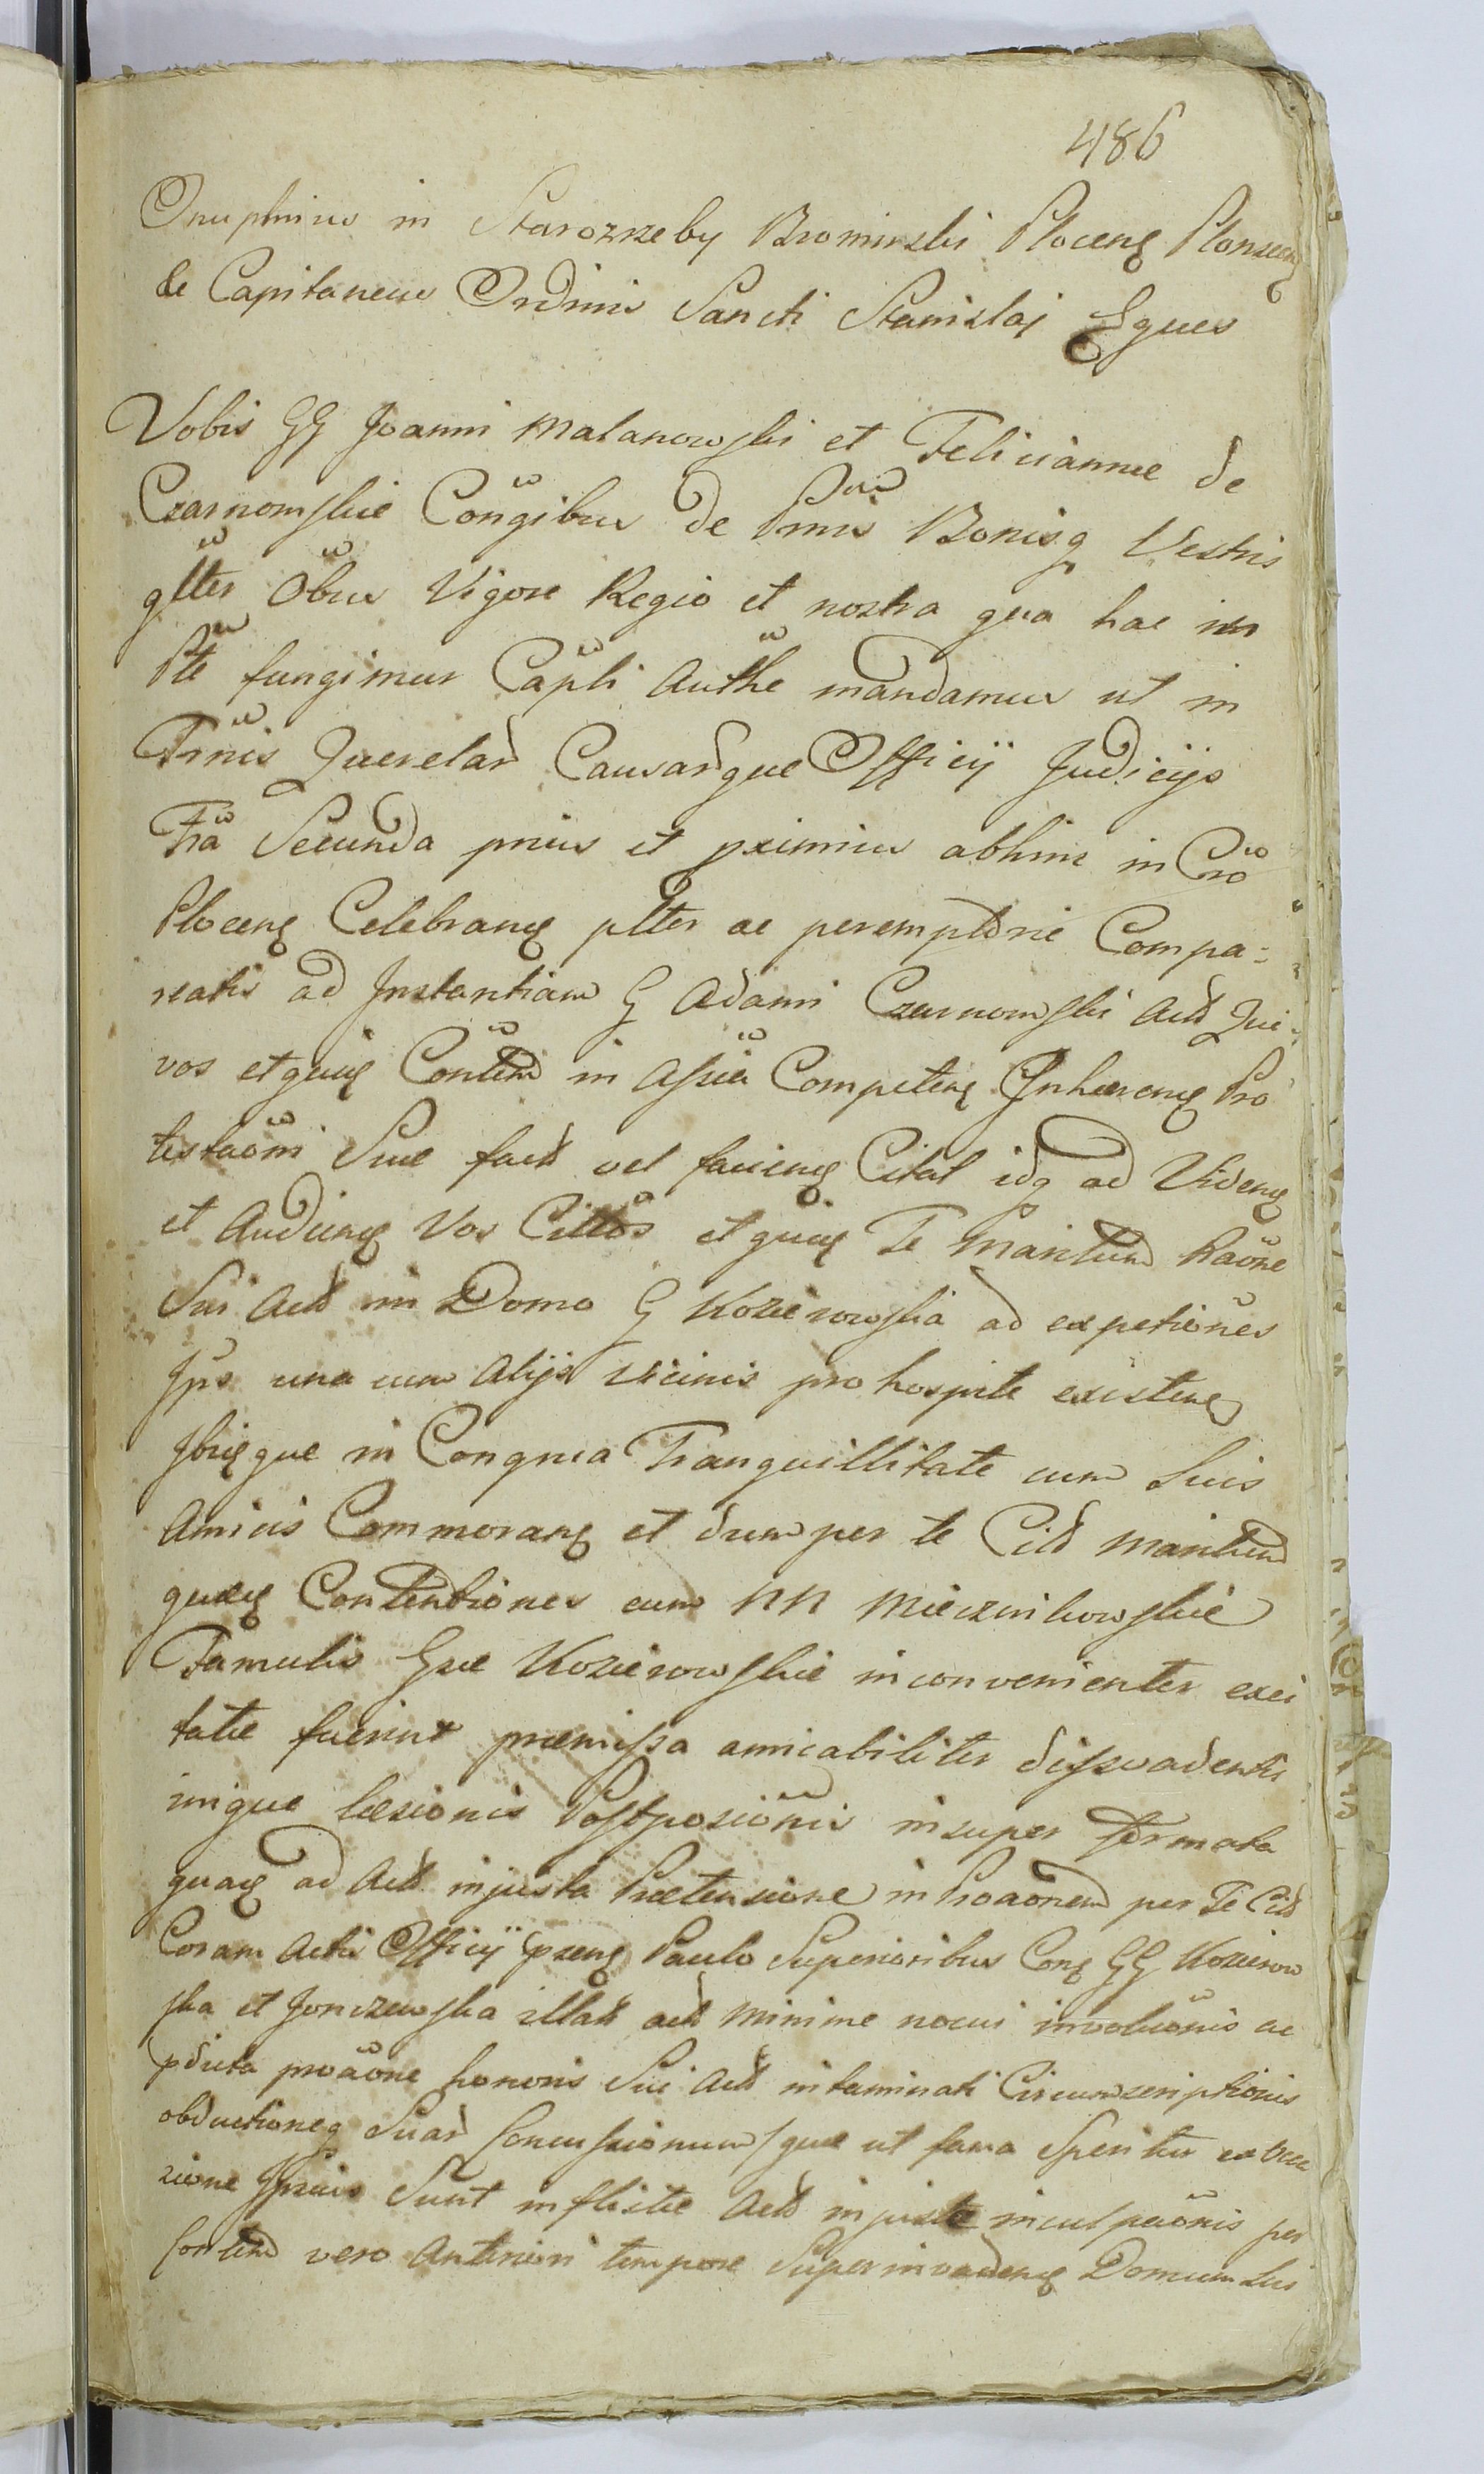 486
Onuphrius in Starozreby Bromirski Ploceng Plonscens
&c Capitaneus Ordinis Sancti Stanislai Eques
Vobis GG Joanni Malanowski et Feliciannae de
Czarnomskie Congibus de Pnnis Bonisq Vestris
gltter Obus Vigore Regio et nostra qua hac in
Pte fungimur Capli Authe mandamus ut in
Trnis Querelar Causarque Officij Judicijs
Fria Secunda prius et pximius abhinc in Cro
Ploceng Celebrang pltter ac peremptorie Compa-
reatis ad Instantiam G Adami Czarnomski Act Qui
vos et quem Contem in Assia Competeng Inhaereng Pro
testaoni Suae fact vel facieng Citat idq ad Videng
et Audieng Vos Cittos et quem Te Maritum Raone
Sui Act in Domo G Kozierowska ad expetiones
Jps una cum Alijs Vicinis pro hospite existeng
Jbiqque in Congrua Tranquillitate cum Suis
Amicis Commorang et dum per te Citt Maritum
quaeq Contentiones cum NN Miecznikowskie
Famulis Gsae Kozierowskie inconvenienter exci
tatae fuerint praemissa amicabiliter dissvadentis
inique laesionis Postposionis insuper formata
quaq ad Act injusta Praetensione in Proaonem per Te Citt
Coram Actis Officij Pzeng Paulo Superioribus Cong GG Kozierow
ska et Jonczewska illatt act minime nocui involuonis ac
pducta proaone honoris Sui Act intaminati Circumscriptionis
obductioneq Suar Concussionum quae ut fama Speritur ex
sione Jpsius Sunt inflictae Act injuste inculpaonis per
Contem vero Anteriori tempore Superinvadeng Domum Sui